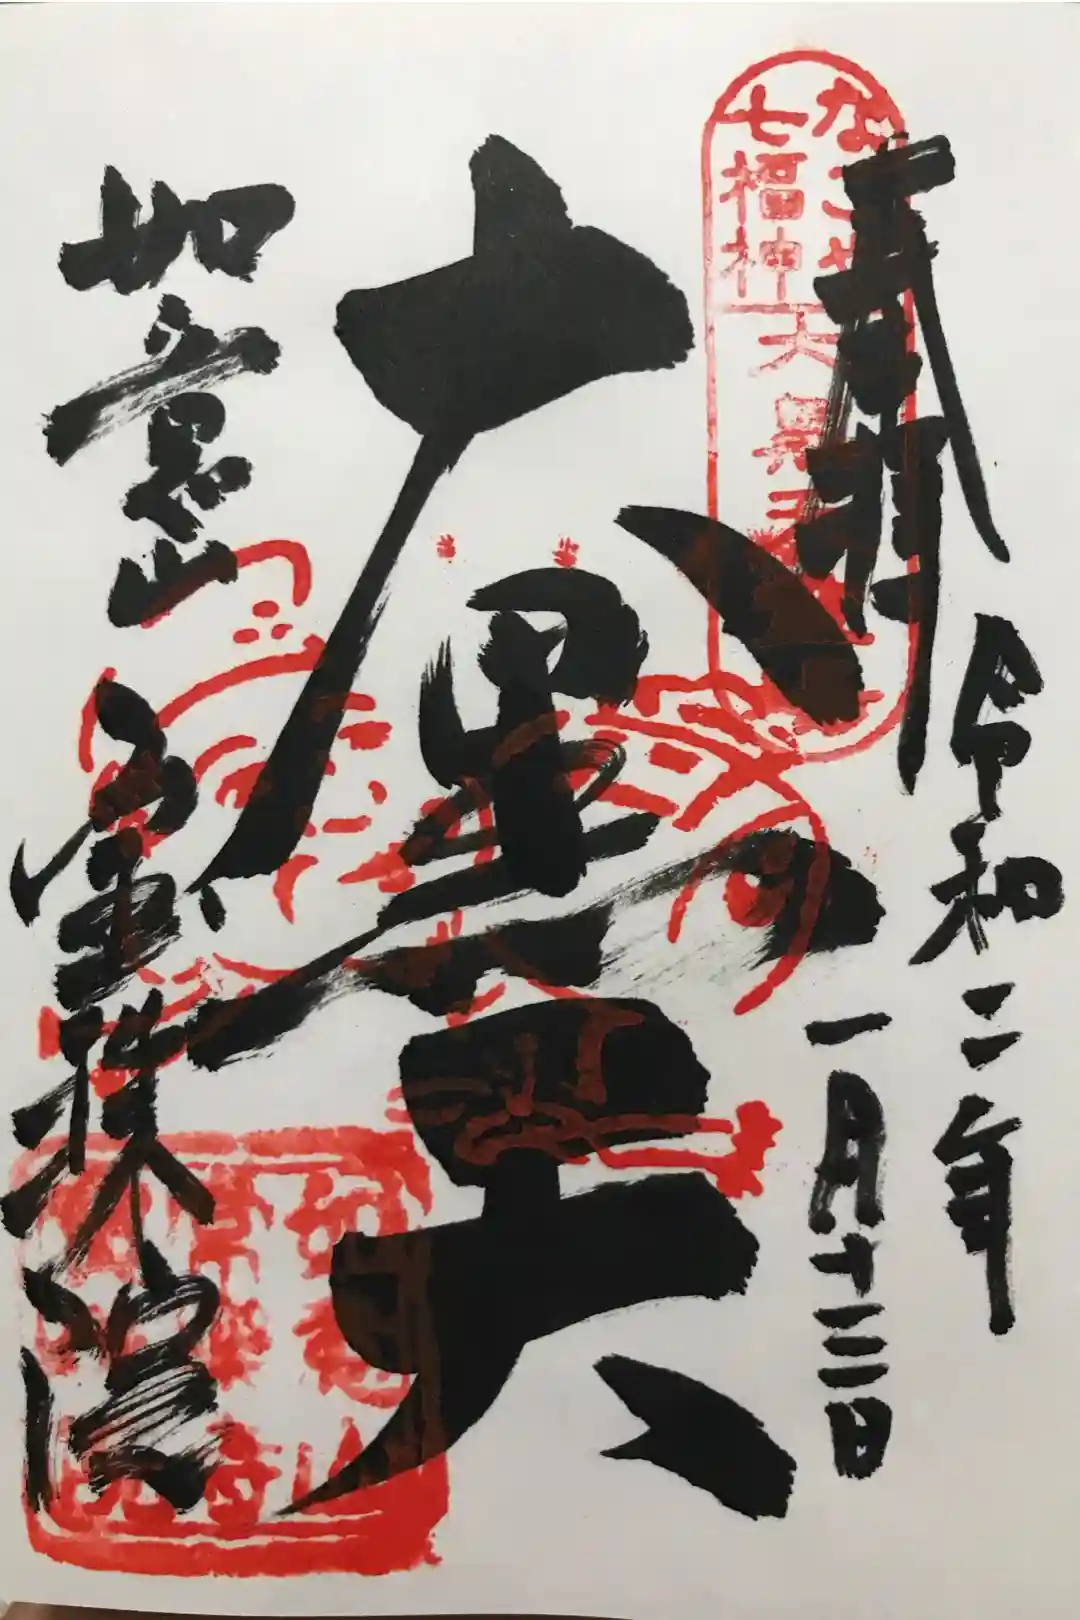 奉拝
令和二年
一月十三日
なごや
七福神
大黒天
大黒天
如意山
寳珠院